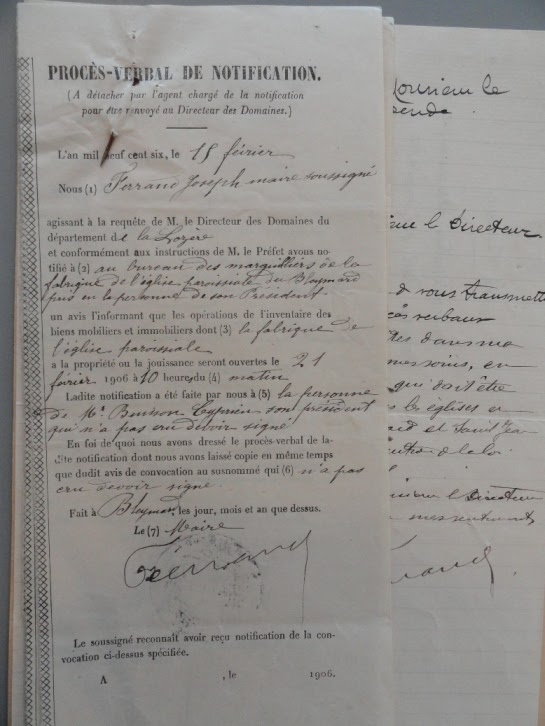 PROCÈS-VERBAL DE NOTIFICATION.
(A détacher par l'agent chargé de la notification
pour être renvoyé au Directeur des Domaines.)
L'an mil neuf cent six, le 15 février
Nous (1) Ferrand Joseph maire soussigné
agissant à la requête de M. le Directeur des Domaines du
département de la Lozère
et conformément aux instructions de M. le Préfet avons no-
tifié à (2) au bureau des marguilliers de la
fabrique de l'église paroissiale du Bleymard
pris en la personne de son Président
un avis l'informant que les opérations de l'inventaire des
biens mobiliers et immobiliers dont (3) la fabrique de
l'église paroissiale
a la propriété ou la jouissance seront ouvertes le 21
février 1906 à 10 heures du (4) matin
Ladite notification a été faite par nous à (5) la personne
de Mr Buisson Cyprien son président
qui n'a pas cru devoir signé
En foi de quoi nous avons dressé le procès-verbal de la-
dite notification dont nous avons laissé copie en même temps
que dudit avis de convocation au susnommé qui (6) n'a pas
cru devoir signé
Fait à Bleymard, les jour, mois et an que dessus.
Le (7) Maire
Ferrand
Le soussigné reconnaît avoir reçu notification de la con-
vocation ci-dessus spécifiée.
A , le 1906.
Monsieur le
l Directeur
vous transmettre
verbaux
dans ma
mes soins, en
qui doit être
les églises
et Saint Jean
de la loi
l Directeur